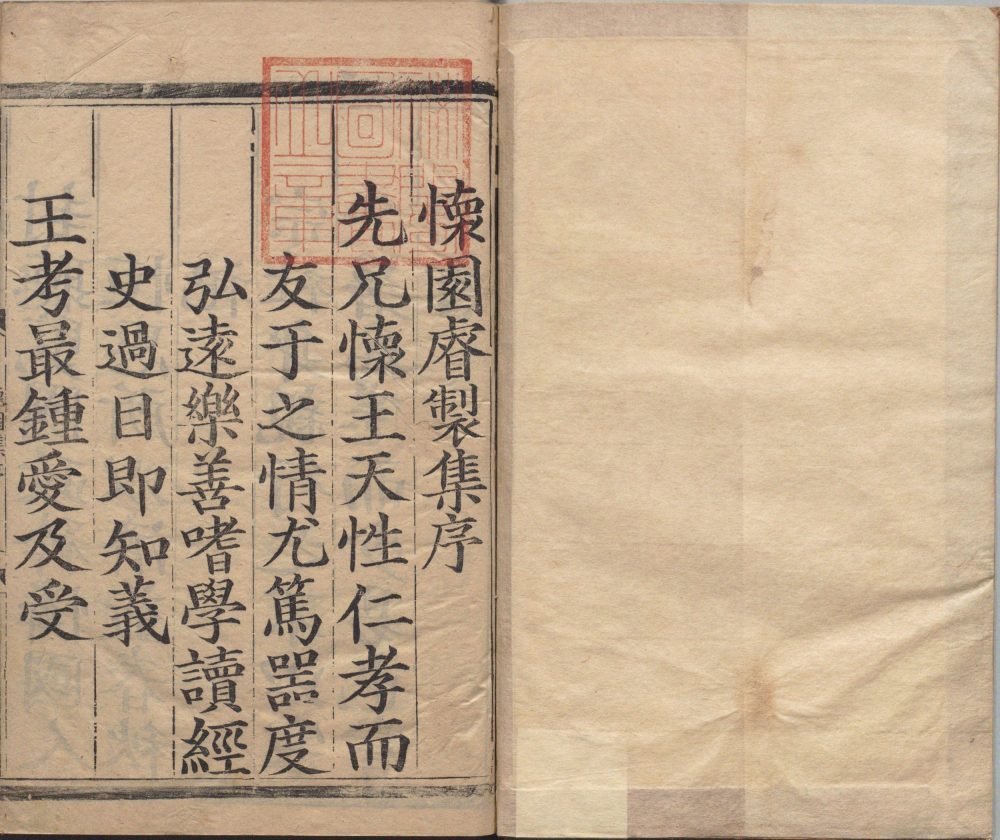 懷園睿製集序
先兄懷王天性仁孝而
友于之情尤篤器度
弘遠樂善嗜學讀經
史過目即知義
王考最鍾愛及受